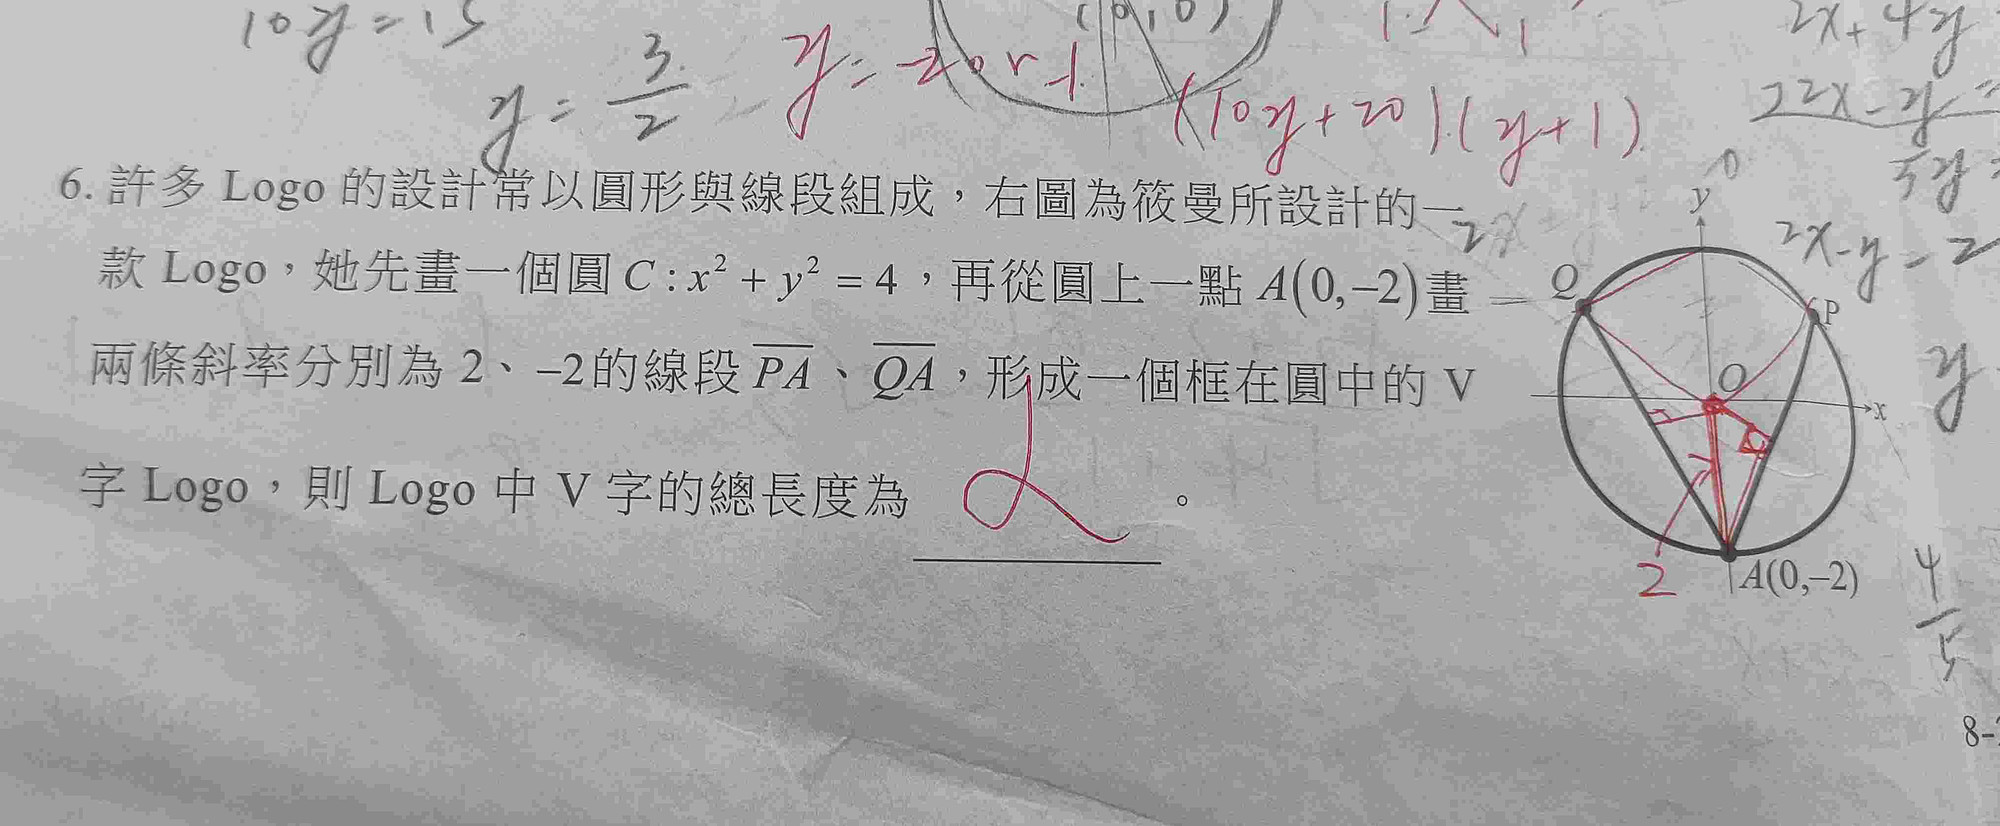 10y=15
y=3/2
y=-2 or -1
(10y+20)(y+1)
2x+4y
22x-y=
5y=
6. 許多 Logo 的設計常以圓形與線段組成，右圖為筱曼所設計的一
款 Logo，她先畫一個圓 C : x² + y² = 4，再從圓上一點 A(0,−2) 畫
兩條斜率分別為 2、−2的線段 P̅A̅、Q̅A̅，形成一個框在圓中的 V
字 Logo，則 Logo 中 V 字的總長度為 。
y
2x-y=2
Q
P
O
x
y
2
A(0,−2)
4/5
8-